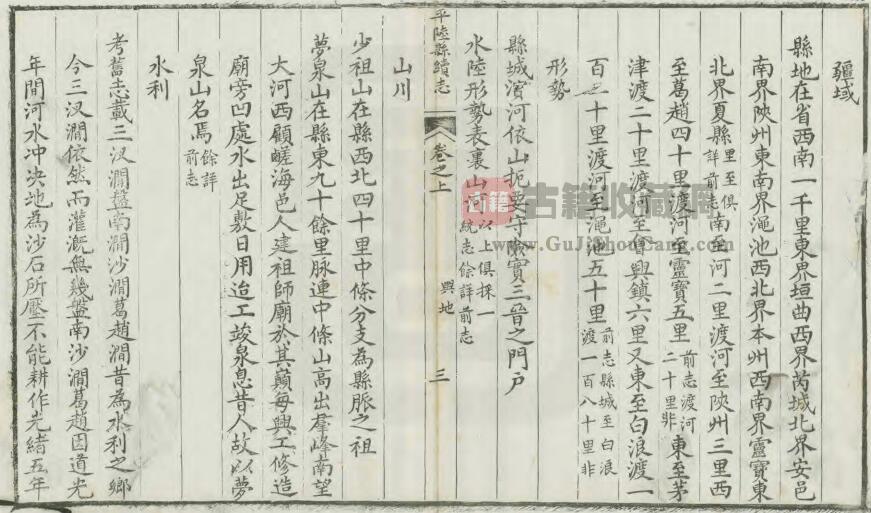 疆域
縣地在省西南一千里東界垣曲西界芮城北界安邑
南界陜州東南界澠池西北界本州西南界靈寶東
北界夏縣里至俱詳前志南至河二里渡河至陜州三里西
至葛趙四十里渡河至靈寶五里前志渡河二十里非東至茅
津渡二十里渡河至會興鎮六里又東至白浪渡一
百二十里渡河至澠池五十里前志縣城至白浪渡一百八十里非
形勢
縣城濵河依山扼要守險實三晉之門户
水陸形勢表裏山河以上俱採一統志餘詳前志
平陸縣續志
卷之上
輿地
三
山川
少祖山在縣西北四十里中條分支為縣脈之祖
夢泉山在縣東九十餘里脉連中條山高出羣峰南望
大河西顧鹺海邑人建祖師廟於其巔每興工修造
廟旁凹處水出足敷日用迨工竣泉息昔人故以夢
泉山名焉餘詳前志
水利
考舊志載三汊澗盤南澗沙澗葛趙澗昔為水利之鄉
今三汊澗依然而灌溉無幾盤南沙澗葛趙因道光
年間河水冲决地為沙石所壓不能耕作光緒五年
古籍
古籍收藏网
www.GuJiShouCang.com